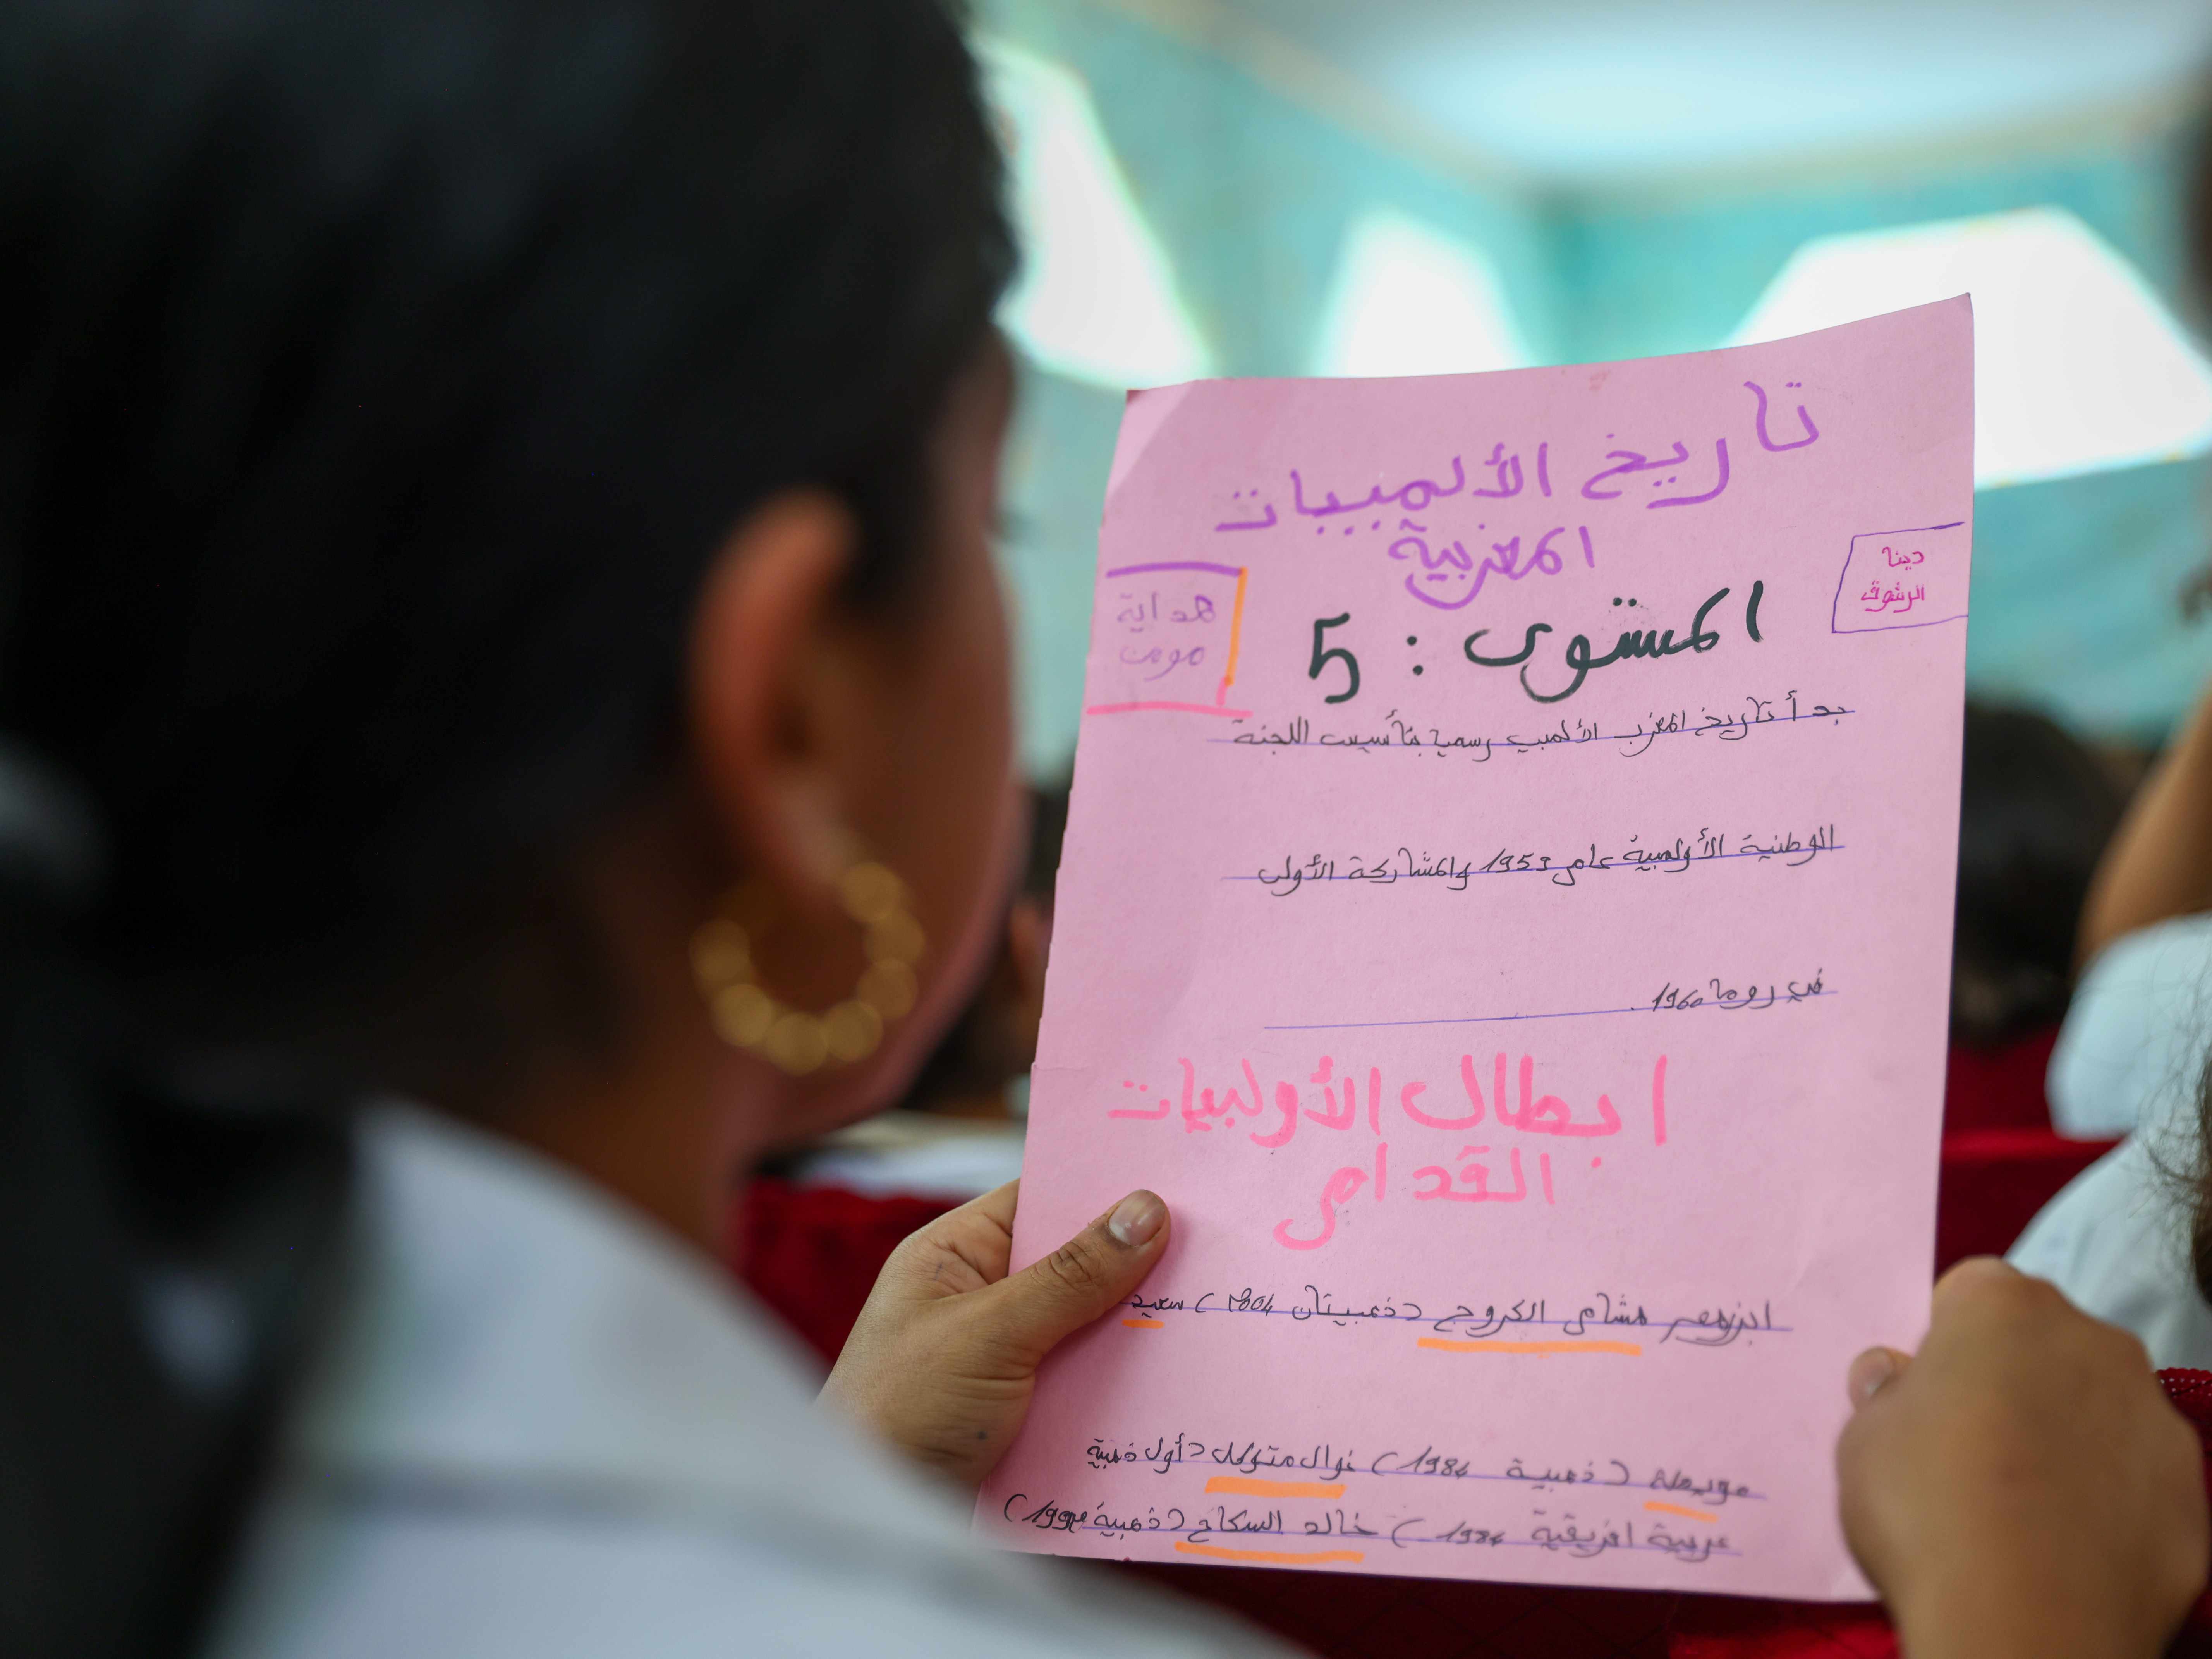 تاريخ الألمبيات
المغربية
دينا
الرشوق
هداية
المستوى : 5
بدأ تاريخ المغرب الألمبي رسميا بتأسيس اللجنة
الوطنية الأولمبية عام 1959 والمشاركة الأولى
في روما 1960.
ابطال الأولبيات
القدام
ابزرهم هشام الكروج (ذهبيتان 2004) سعيد
عويطة (ذهبية 1984) نوال متوكل (أول ذهبية
عربية افريقية 1984) خالد السكاح (ذهبية 1992)